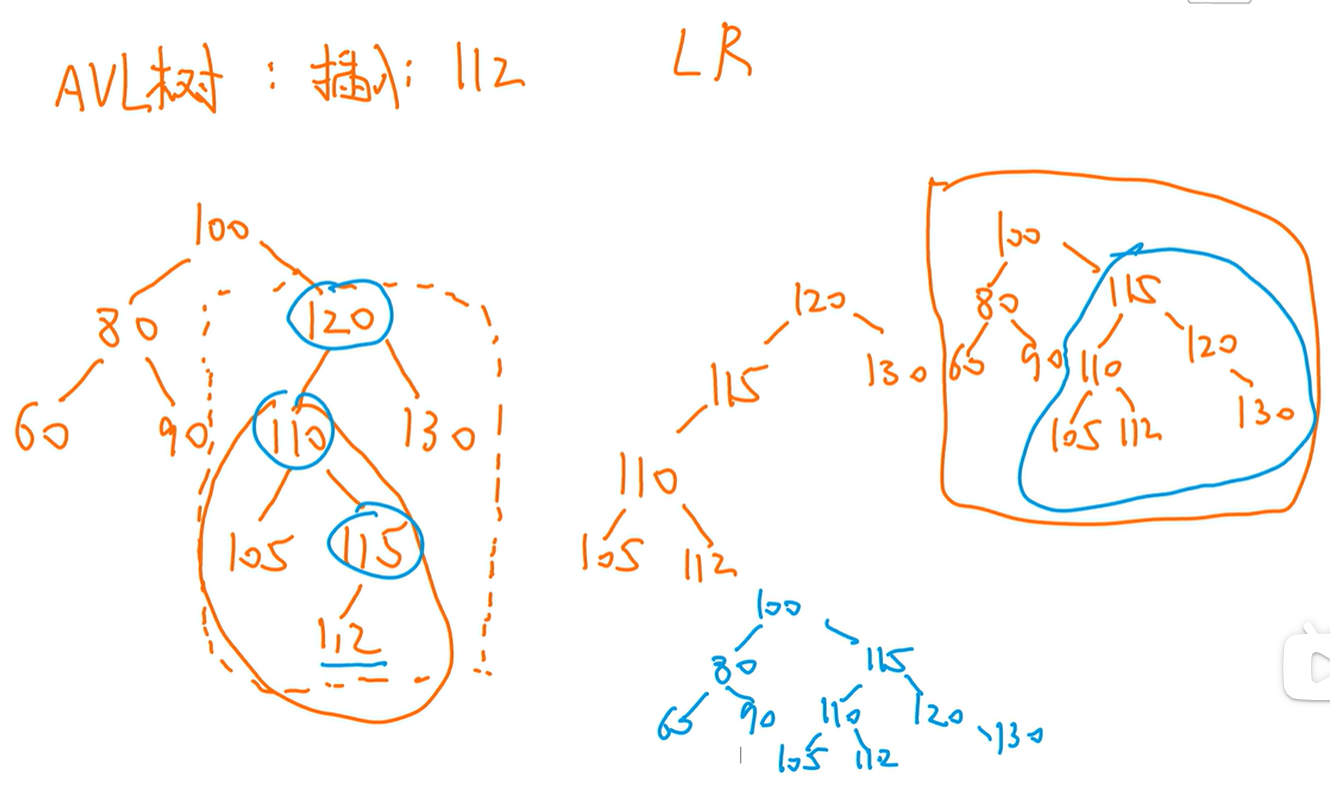 AVL树：插入：112
LR
100
80 120
60 90 110 130
105 115
112
120
115 130
110
105 112
100
80 115
65 90 110 120
105 112 130
100
80 115
65 90 110 120 130
105 112